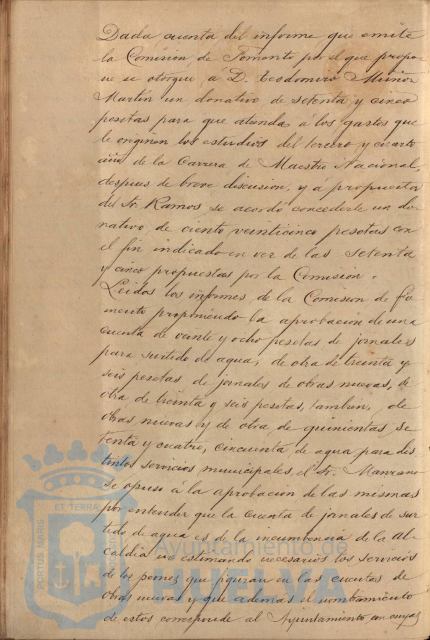 Dada cuenta del informe que emite
la Comision de Fomento por el que propo-
ne se otorgue a D. Teodomiro Muñoz
Martin un donativo de setenta y cinco
pesetas para que atienda á los gastos que
le originen los estudios del tercero y cuarto
año de la Carrera de Maestro Nacional,
despues de breve discusion, y á propuesta
del Sr. Ramos se acordó concederle un do-
nativo de ciento veinticinco pesetas con
el fin indicado en vez de las setenta
y cinco propuestas por la Comision.
Leidos los informes de la Comision de Fo-
mento proponiendo la aprobacion de una
cuenta de veinte y ocho pesetas de jornales
para surtido de agua, de otra de treinta y
seis pesetas, de jornales de obras nuevas, de
otra de treinta y seis pesetas, tambien, de
obras nuevas y de otra de quinientas, se-
tenta y cuatro, cincuenta de agua para dis-
tintos servicios municipales, el Sr. Manzano
se opuso á la aprobacion de las mismas
por entender que la cuenta de jornales de sur-
tido de agua es de la incumbencia de la Al-
caldia no estimando necesarios los servicios
de los peones que figuran en las cuentas de
obras nuevas y que además el nombramiento
de estos corresponde al Ayuntamiento en cuyas
PORTUS MARIS ET TERRA
Ayuntamiento de